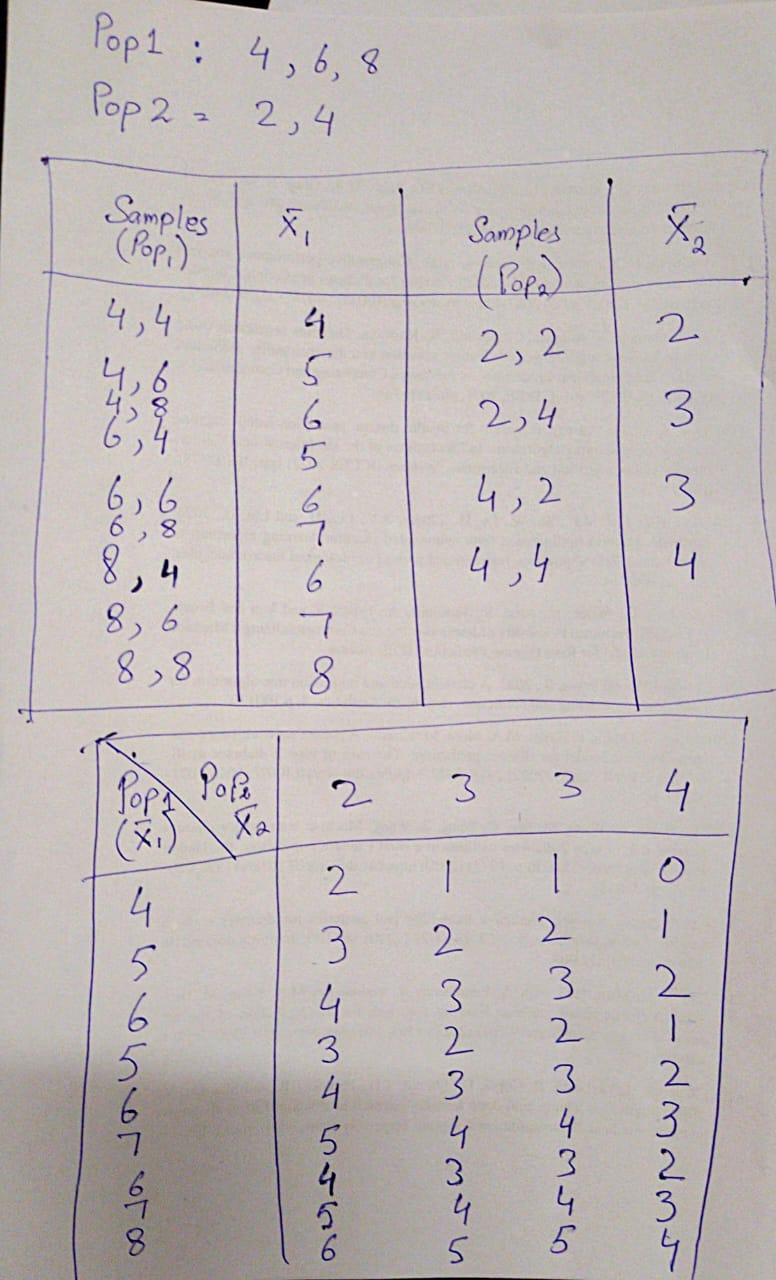 Pop1 : 4, 6, 8
Pop2 = 2, 4
Samples (Pop₁) X̄₁ Samples (Pop₂) X̄₂
4,4 4 2,2 2
4,6 5 2,4 3
4,8 6 4,2 3
6,4 5 4,4 4
6,6 6
6,8 7
8,4 6
8,6 7
8,8 8
Pop1 (X̄₁) Pop₂ X̄₂ 2 3 3 4
4 2 1 1 0
5 3 2 2 1
6 4 3 3 2
5 3 2 2 1
6 4 3 3 2
7 5 4 4 3
6 4 3 3 2
7 5 4 4 3
8 6 5 5 4